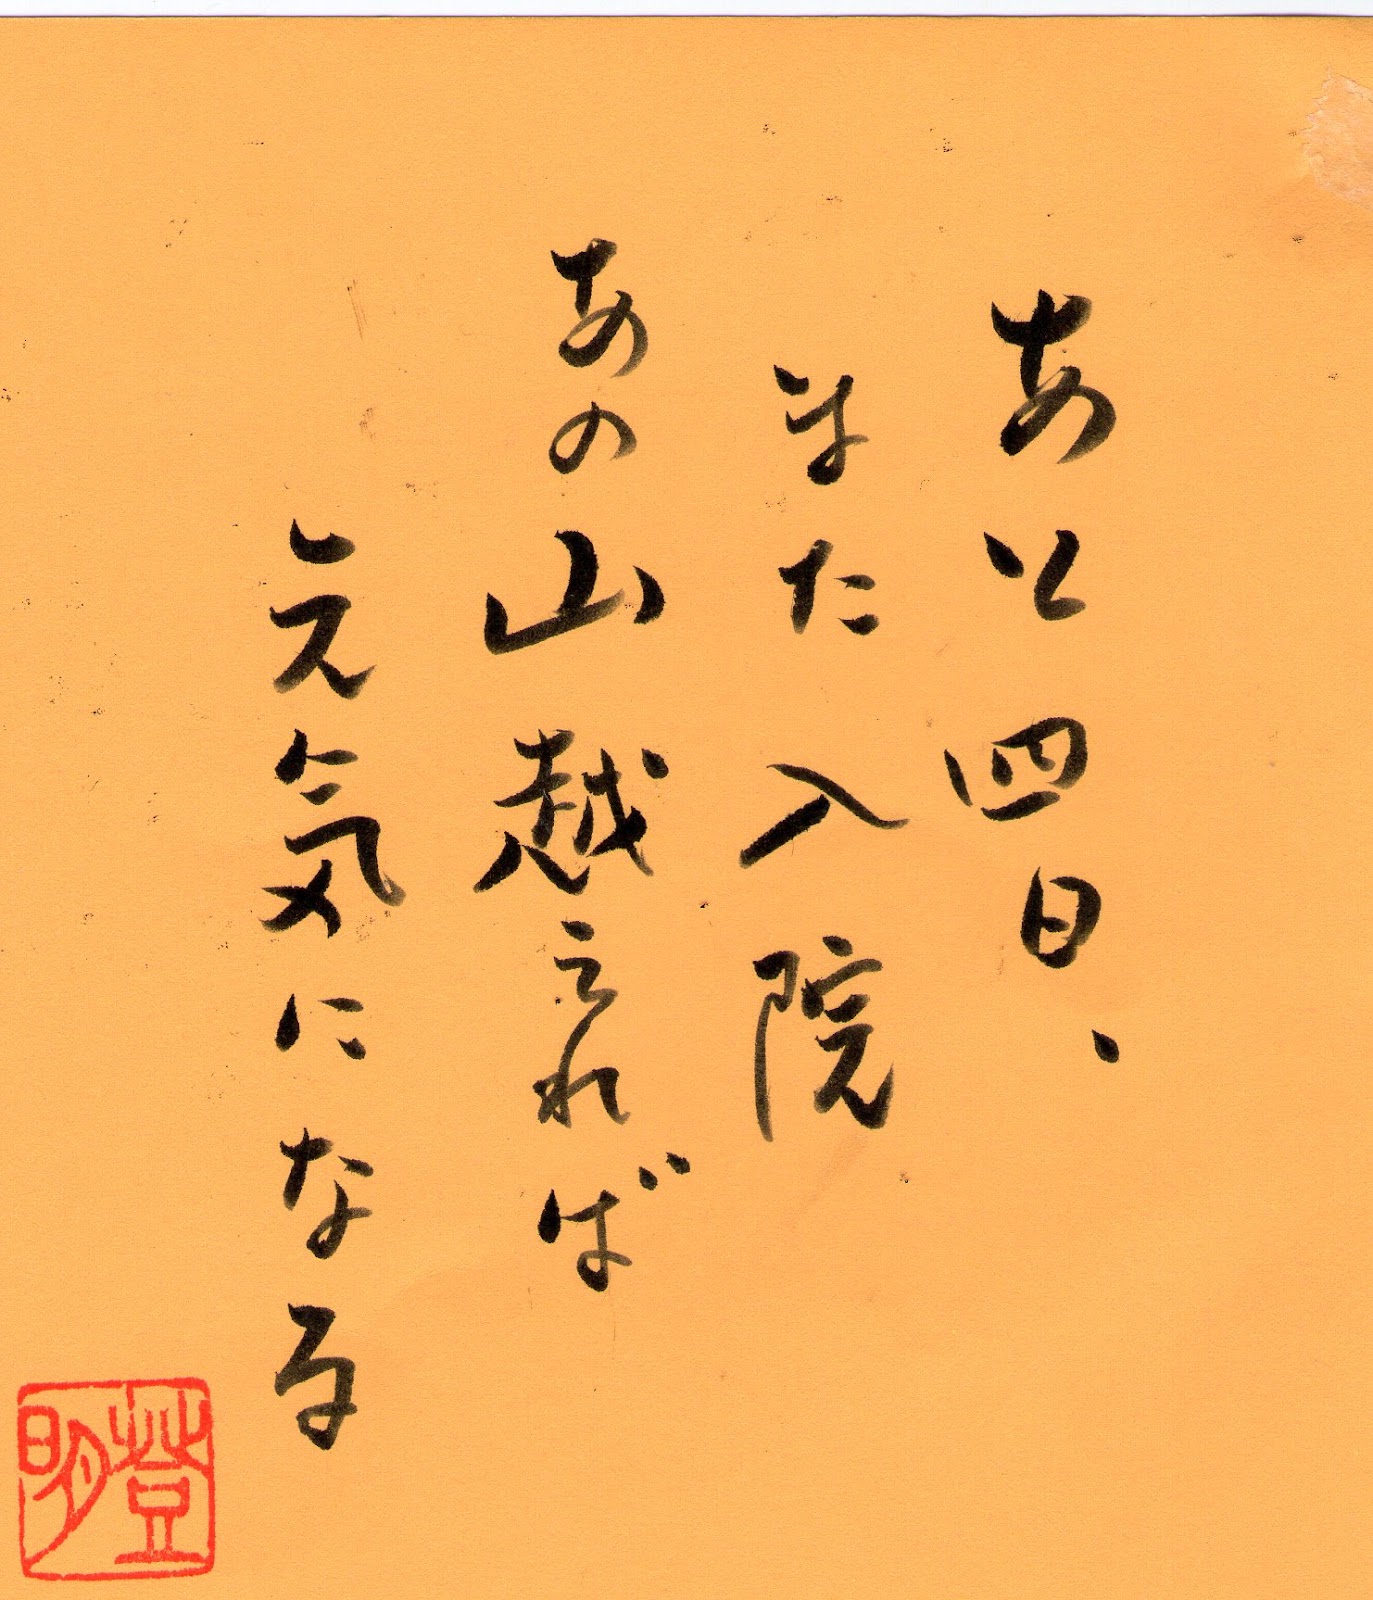 あと四日、
また入院
あの山越えれば
元気になる
登明